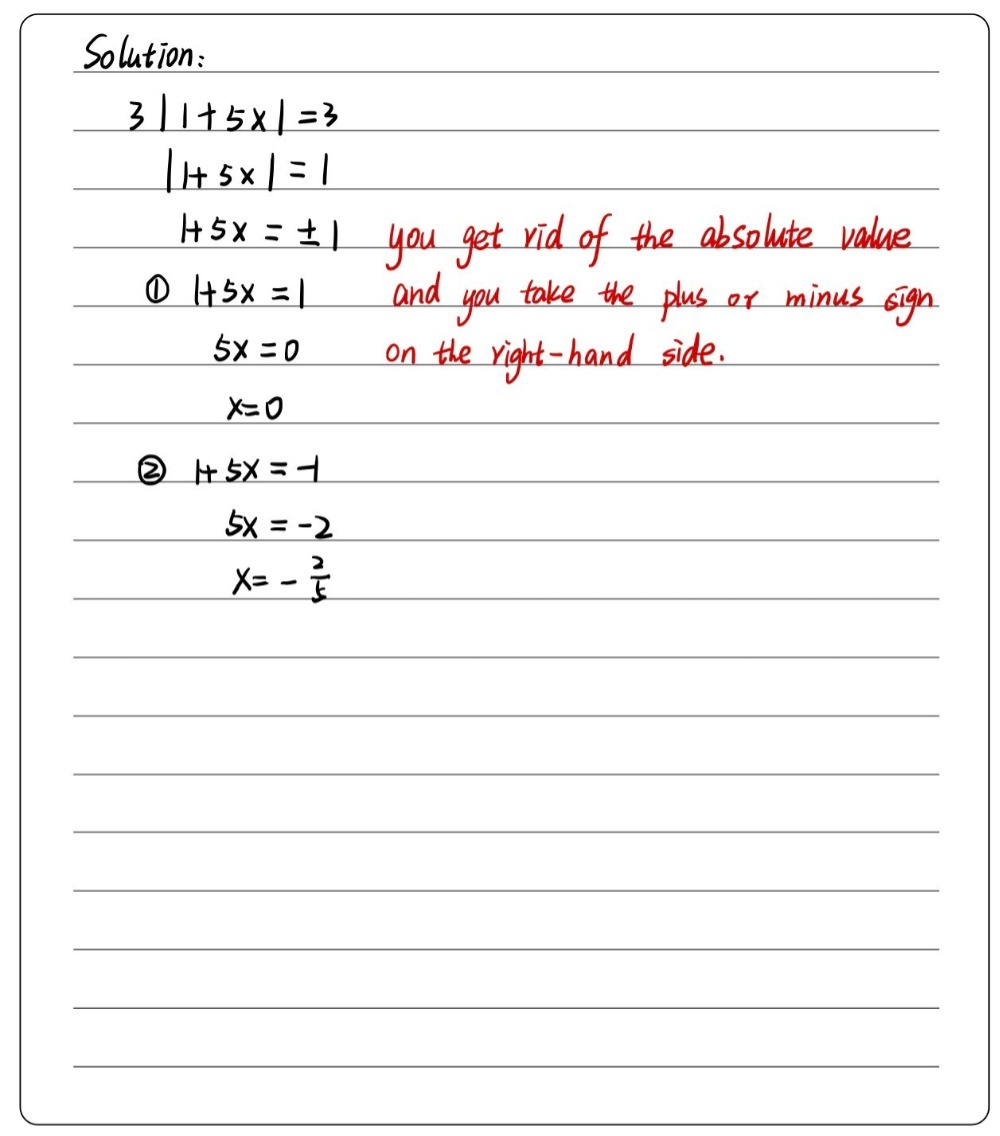 Solution:
3|1+5x|=3
|1+5x|=1
1+5x=±1 you get rid of the absolute value
① 1+5x=1 and you take the plus or minus sign
5x=0 on the right-hand side.
x=0
② 1+5x=-1
5x=-2
x=-2/5